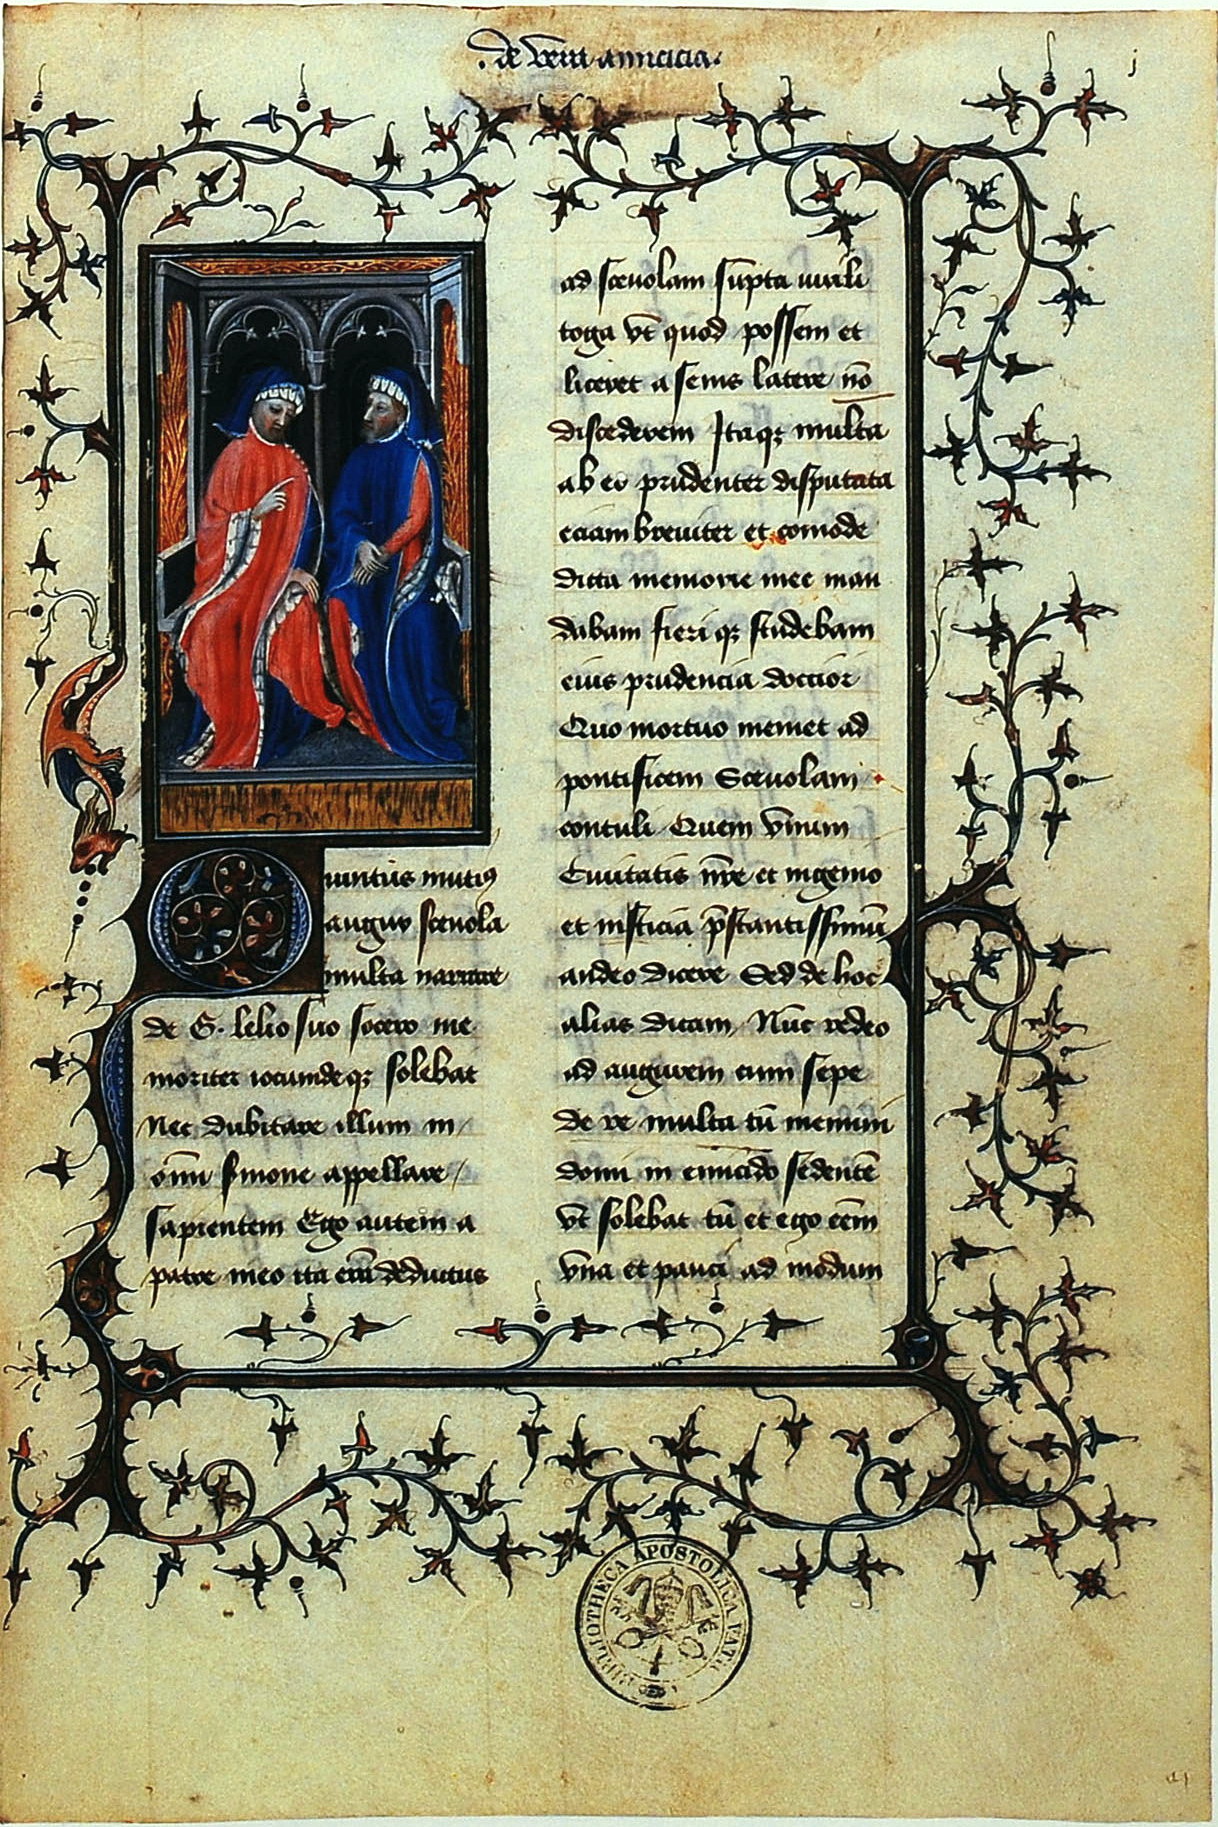 .de veni amicicia.
j
Quintus mutius
augur scevola
multa narrare
de G. lelio suo socero me
moriter iocundeqz solebat
Nec dubitare illum in
omni sermone appellare
sapientem Ego autem a
patre meo ita eram deductus
ad scevolam supta virili
toga ut quod possem et
liceret a senis latere nō
discederem Itaqz multa
ab eo prudenter disputata
eciam breviter et comode
dicta memorie mee man
dabam fieri qz studebam
eius prudencia doctior
Quo mortuo memet ad
pontificem Scevolam
contuli Quem vnum
Civitatis nr̄e et ingenio
et iusticia p̄stantissimū
audeo dicere Sed de hoc
alias dicam Nūc redeo
ad augurem cum sepe
de re multa tū memini
domi in emicicḷo sedentē
vt solebat tū et ego eēm
vna et pauci ad modum
BIBLIOTHECA APOSTOLICA VATI